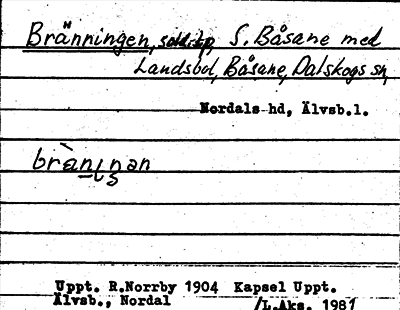 Bränningen, sold.tp, S. Båsane med
Landsbol, Båsane, Dalskogs sn,
Nordals hd, Älvsb.l.
brànıŋən
Uppt. R.Norrby 1904 Kapsel Uppt.
Älvsb., Nordal /L.Aks. 1981